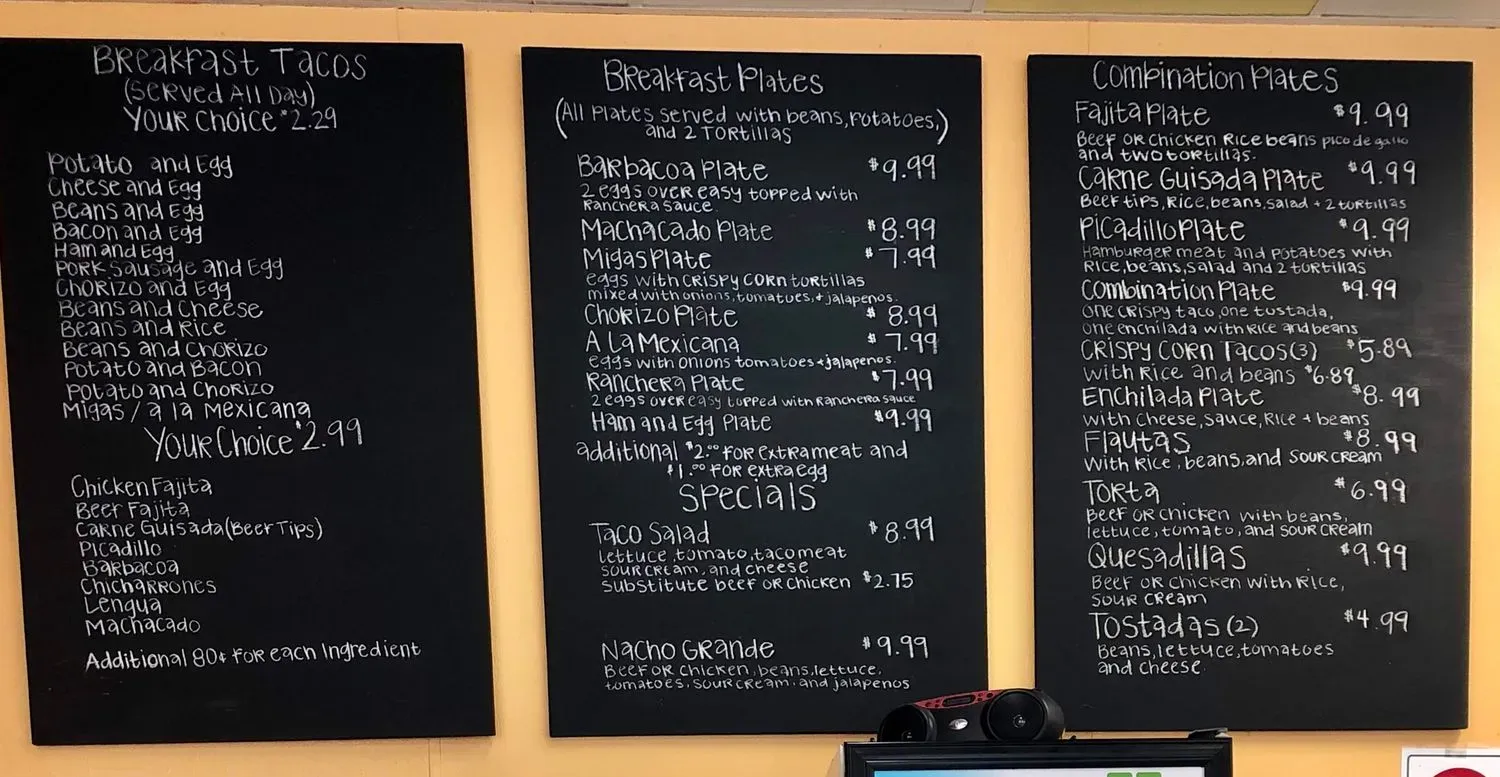 Breakfast Tacos
(Served All Day)
Your Choice $2.29
Potato and Egg
Cheese and Egg
Beans and Egg
Bacon and Egg
Ham and Egg
Pork Sausage and Egg
Chorizo and Egg
Beans and Cheese
Beans and Rice
Beans and Chorizo
Potato and Bacon
Potato and Chorizo
Migas / a la Mexicana
Your Choice $2.99
Chicken Fajita
Beef Fajita
Carne Guisada (Beef Tips)
Picadillo
Barbacoa
Chicharrones
Lengua
Machacado
Additional 80¢ for each Ingredient
Breakfast Plates
(All Plates served with beans, Potatoes,)
and 2 Tortillas
Barbacoa Plate $9.99
2 eggs over easy topped with
Ranchera Sauce
Machacado Plate $8.99
Migas Plate $7.99
eggs with crispy corn tortillas
mixed with onions, tomatoes, + jalapenos.
Chorizo Plate $8.99
A La Mexicana $7.99
eggs with onions tomatoes + jalapenos.
Ranchera Plate $7.99
2 eggs over easy topped with Ranchera sauce
Ham and Egg Plate $9.99
additional $2.00 for extra meat and
$1.00 for extra egg
Specials
Taco Salad $8.99
lettuce, tomato, taco meat
sour cream, and cheese
substitute beef or chicken $2.75
Nacho Grande $9.99
Beef or Chicken, beans, lettuce,
tomatoes, sour cream, and jalapenos
Combination Plates
Fajita Plate $9.99
Beef or Chicken Rice beans pico de gallo
and two tortillas.
Carne Guisada Plate $9.99
Beef tips, Rice, beans, salad + 2 tortillas
Picadillo Plate $9.99
Hamburger meat and potatoes with
Rice, beans, salad and 2 tortillas
Combination Plate $9.99
one crispy taco, one tostada,
one enchilada with Rice and beans
Crispy Corn Tacos (3) $5.89
with Rice and beans $6.89
Enchilada Plate $8.99
with cheese, sauce, Rice + beans
Flautas $8.99
with Rice, beans, and sour cream
Torta $6.99
Beef or chicken with beans,
lettuce, tomato, and sour cream
Quesadillas $9.99
Beef or Chicken with Rice,
sour cream
Tostadas (2) $4.99
Beans, lettuce, tomatoes
and cheese.